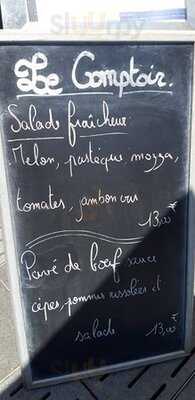 Le Comptoir.
Salade fraîcheur
Melon, pastèque mozza,
tomates, jambon cru
13,00€
Pavé de bœuf sauce
cèpes, pommes rissolées et
salade 13,00€